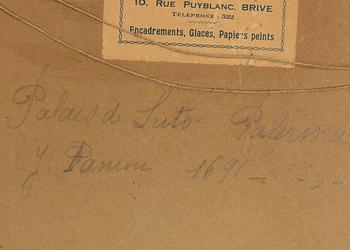 10, RUE PUYBLANC, BRIVE
TÉLÉPHONE : 322
Encadrements, Glaces, Papiers peints
Palais de Luto Palerme
J. Panini 1691 -